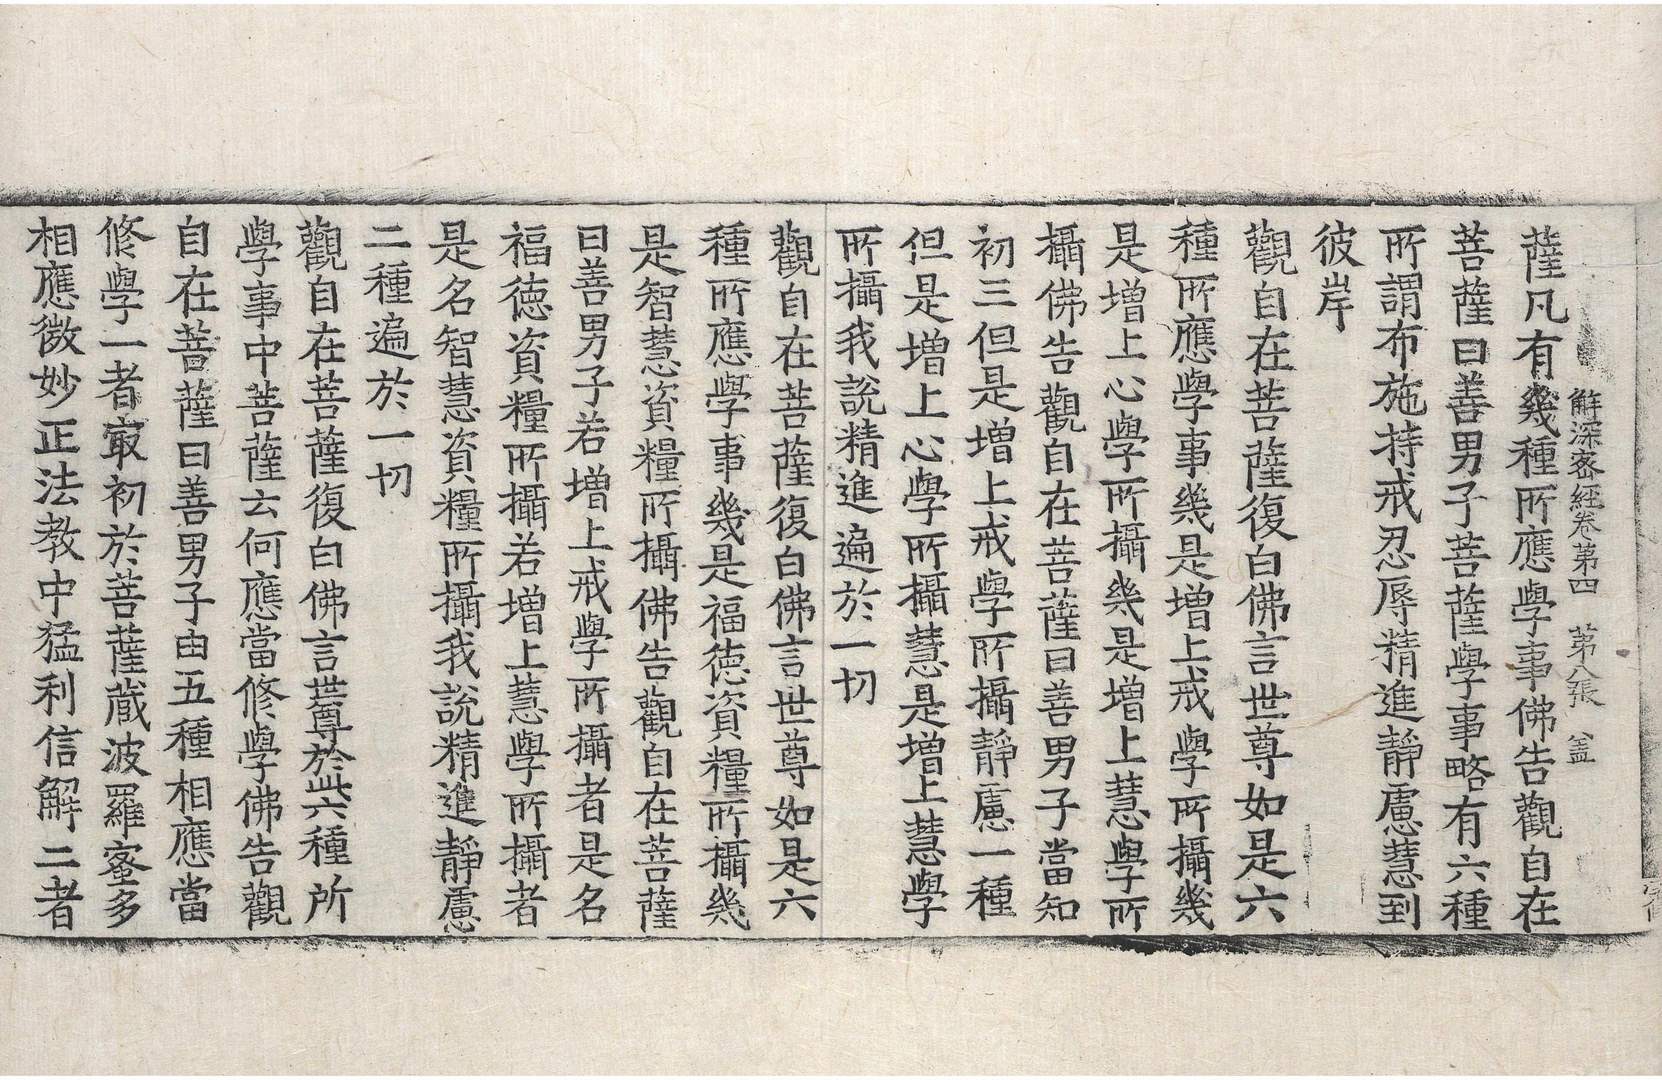 解深密經卷第四　第八張　盖
薩凡有幾種所應學事佛告觀自在
菩薩曰善男子菩薩學事略有六種
所謂布施持戒忍辱精進靜慮慧到
彼岸
觀自在菩薩復白佛言世尊如是六
種所應學事幾是增上戒學所攝幾
是增上心學所攝幾是增上慧學所
攝佛告觀自在菩薩曰善男子當知
初三但是增上戒學所攝靜慮一種
但是增上心學所攝慧是增上慧學
所攝我說精進遍於一切
觀自在菩薩復白佛言世尊如是六
種所應學事幾是福德資糧所攝幾
是智慧資糧所攝佛告觀自在菩薩
曰善男子若增上戒學所攝者是名
福德資糧所攝若增上慧學所攝者
是名智慧資糧所攝我說精進靜慮
二種遍於一切
觀自在菩薩復白佛言世尊於此六種所
學事中菩薩云何應當修學佛告觀
自在菩薩曰善男子由五種相應當
修學一者㝡初於菩薩藏波羅蜜多
相應微妙正法教中猛利信解二者